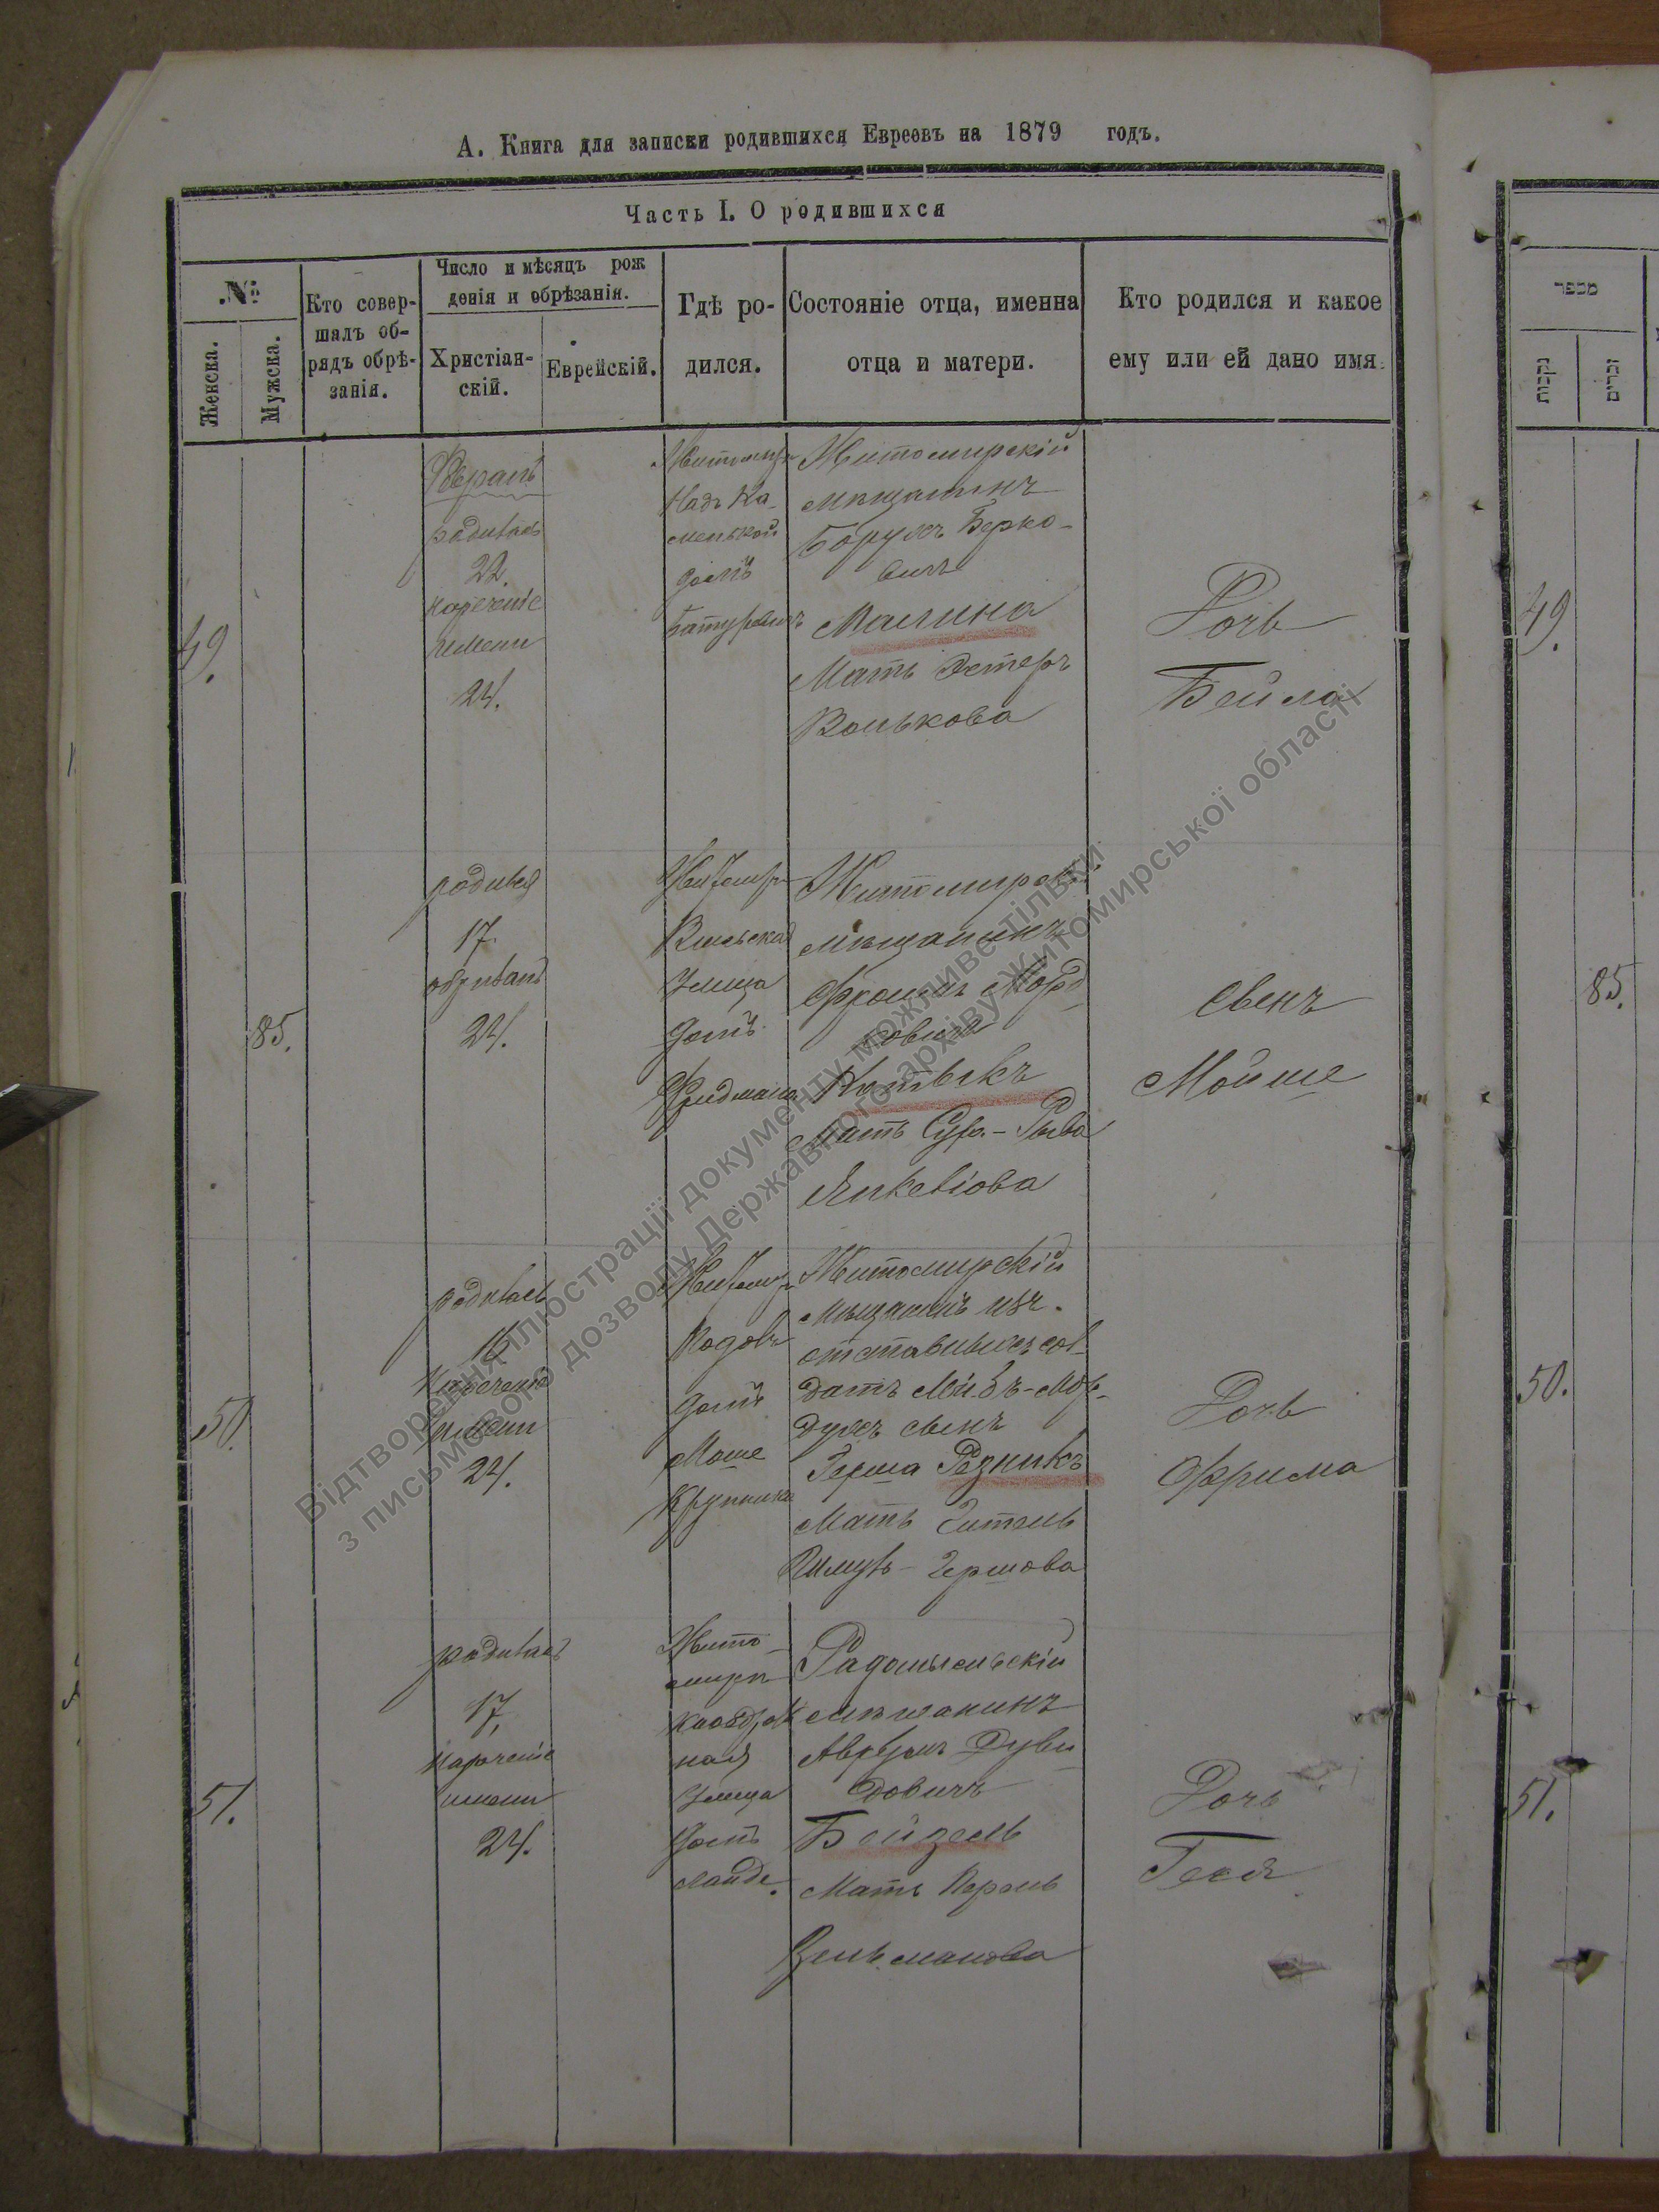 А. Книга для записки родившихся Евреевъ на 1879 годъ.
Часть I. О родившихся
№
Женска.
Мужска.
Кто совер-
шалъ об-
рядъ обрѣ-
занія.
Число и мѣсяцъ рож
денія и обрѣзанія.
Христіан-
скій.
Еврейскій.
Гдѣ ро-
дился.
Состояніе отца, именна
отца и матери.
Кто родился и какое
ему или ей дано имя.
49.
родилась
22.
нареченіе
имени
24.
Надъ Ка-
менькой
домъ
Житомирскій
мѣщанинъ
Борухъ Берко-
вичъ
Малина
Мать Эстеръ
Волькова
Дочь
Бейла
85.
родился
17.
обрѣзанъ
24.
Вильская
Улица
домъ
Фридмана
Житомирскій
мѣщанинъ
Фроимъ Морд
ковичъ
Мать Сура-Рыва
Сынъ
Мойше
50.
родилась
16
нареченіе
имени
24.
домъ
Моше
Крупника
Житомирскій
мѣщанинъ изъ
отставныхъ сол-
датъ
духъ сынъ
Герша Резникъ
Мать
Гершова
Дочь
Фрима
51.
родилась
17,
нареченіе
имени
24.
Жито-
миръ
ная
Улица
домъ
Ланде.
Радомысльскій
мѣщанинъ
Аврумъ Дуви
довичъ
Бейдель
Мать Перель
Зельманова
Дочь
Геся
מספר
נקבות
זכרים
49.
85.
50.
51.
Відтворення ілюстрації документу можливе тільки
з письмового дозволу Державного архіву Житомирської області